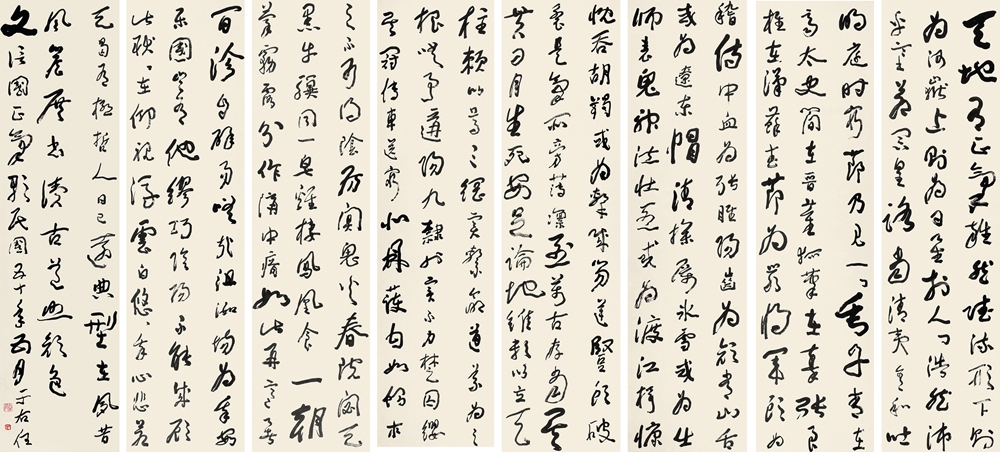 天地有正氣雜然賦流形下則
為河嶽上則為日星於人曰浩然沛
乎塞蒼冥皇路當清夷含和吐
明庭時窮節乃見一一垂丹青在
齊太史簡在晉董狐筆在秦張良
椎在漢蘇武節為嚴將軍頭為
嵇侍中血為張睢陽齒為顏常山舌
或為遼東帽清操厲冰雪或為出
師表鬼神泣壯烈或為渡江楫慷
慨吞胡羯或為擊賊笏逆豎頭破
裂是氣所旁薄凜烈萬古存當其
貫日月生死安足論地維賴以立天
柱賴以尊三綱實繫命道義為之
根嗟予遘陽九隸也實不力楚囚纓
其冠傳車送窮北鼎鑊甘如飴求
之不可得陰房闐鬼火春院閟天
黑牛驥同一皂雞棲鳳凰食一朝
蒙霧露分作溝中瘠如此再寒暑
百沴自辟易嗟哉沮洳場為我安
樂國豈有他繆巧陰陽不能賊顧
此耿耿在仰視浮雲白悠悠我心悲蒼
天曷有極哲人日已遠典型在夙昔
風簷展書讀古道照顏色
文信國正氣歌民國五十年四月于右任